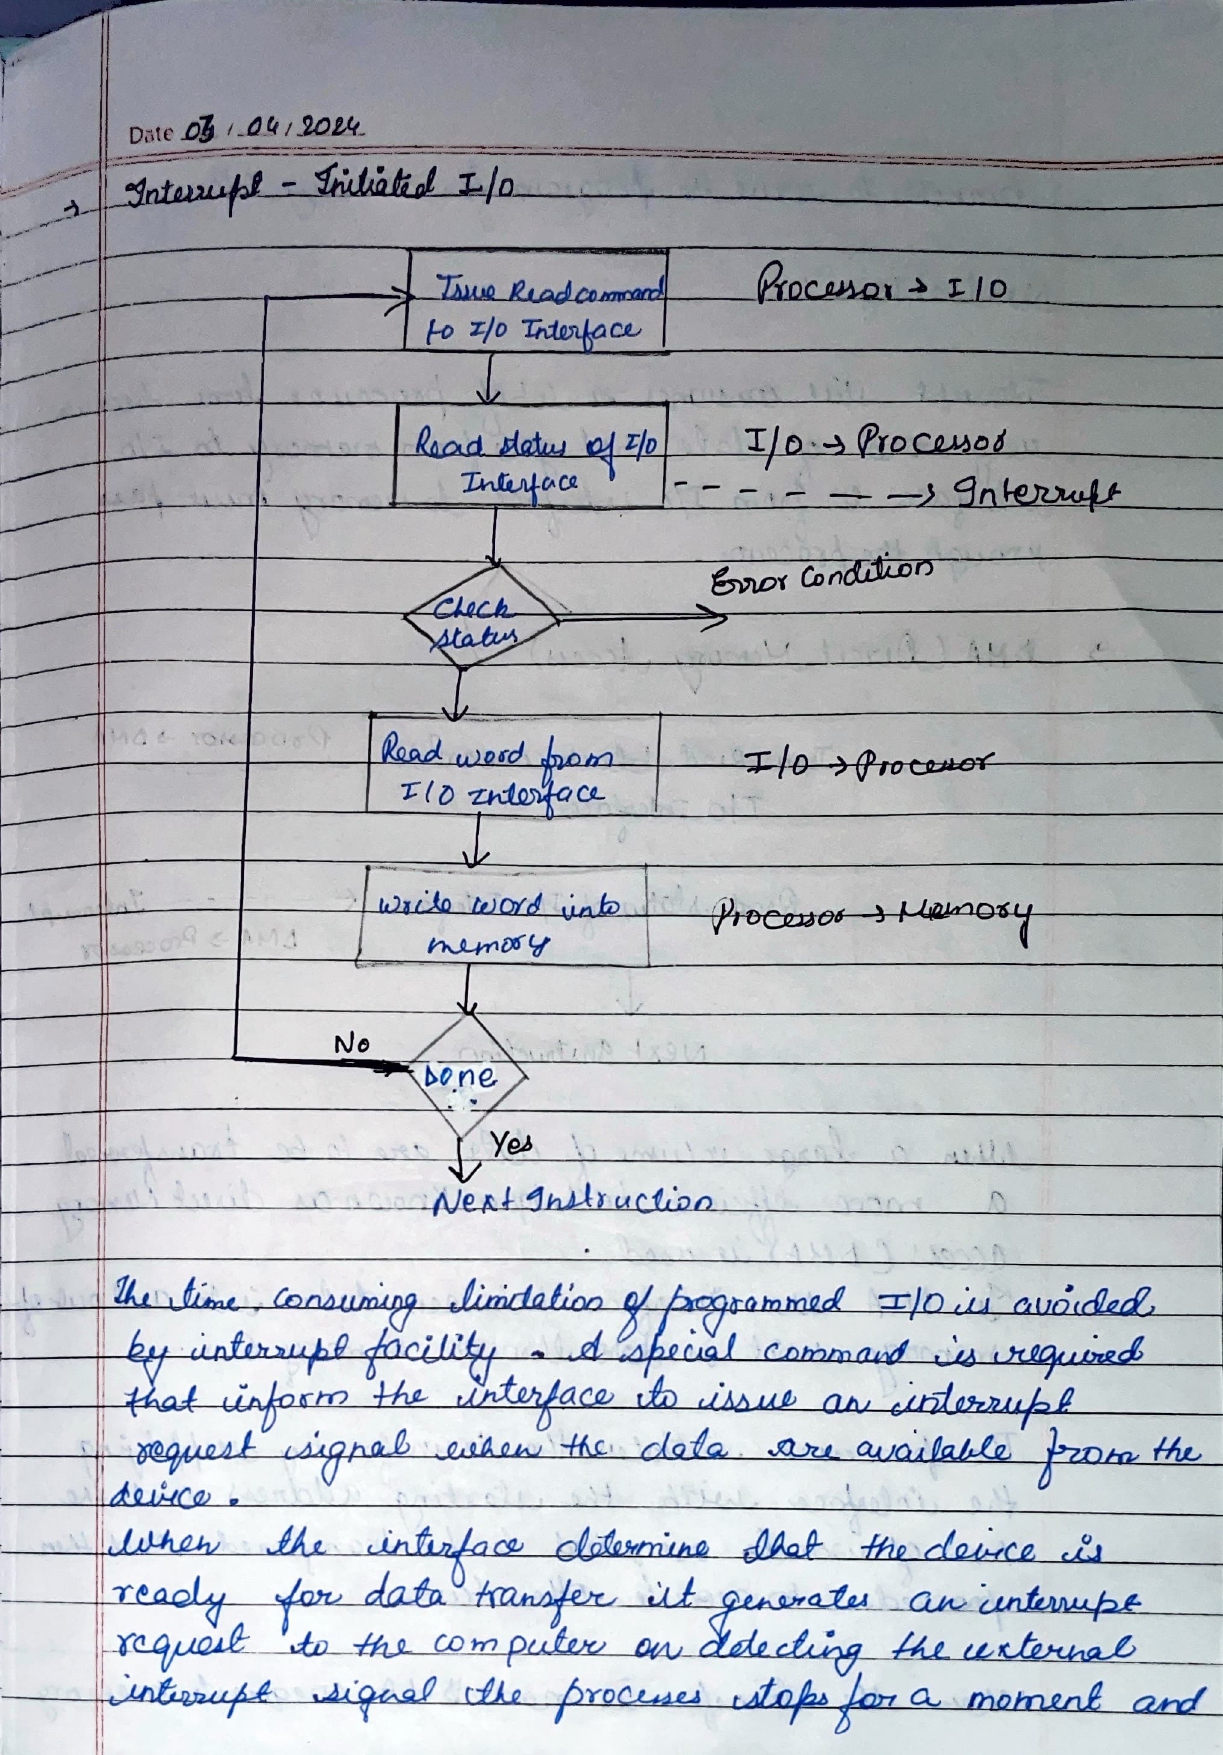 Date 03/04/2024
→ Interrupt - Initiated I/O
Issue Read command
to I/O Interface
Processor → I/O
Read status of I/O
Interface
I/O → Processor
- - - - - → Interrupt
Check
status
Error Condition
Read word from
I/O Interface
I/O → Processor
write word into
memory
Processor → Memory
No
Done
Yes
Next Instruction
The time consuming limitation of programmed I/O is avoided
by interrupt facility. A special command is required
that inform the interface to issue an interrupt
request signal when the data are available from the
device.
When the interface determine that the device is
ready for data transfer it generates an interrupt
request to the computer on detecting the external
interrupt signal the processes stops for a moment and